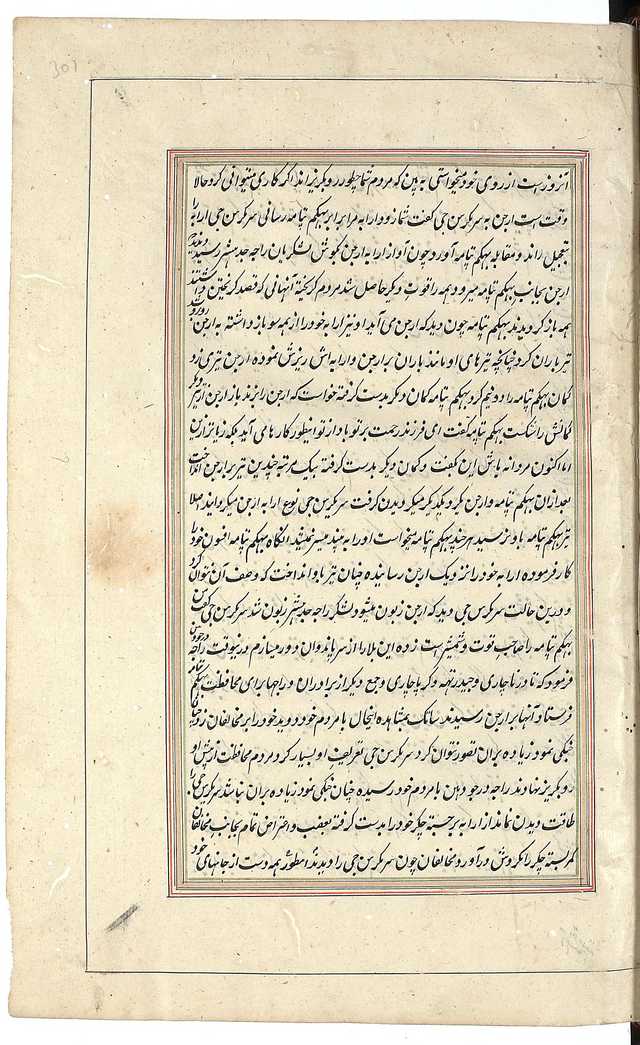 301
آنروز است از روی خود میخواستی به بین که مردم شما چطور رو بگریز اند اگر کاری میتوانی کرد حالا
وقت است ارجن به سرکرسن جی گفت شما زود ارابه مرا برابر بهیکم پتامه رسانی سرکرسن جی ارابه را
تعجیل راند و مقابله بهیکم پتامه آورد و چون آواز ارابه ارجن بگوش لشکریان راجه جدهشتر رسید دیدند که
ارجن بجانب بهیکم پتامه میرود همه را قوت دیگر حاصل شد مردم گریخته آنهائی که قصد گریختن داشتند
همه باز گردیدند بهیکم پتامه چون دید که ارجن می آید او نیز ارابه خود را از همه سو باز داشته به ارجن رو آورد
تیرباران کرد چنانچه تیرهای او مانند باران بر ارجن و ارابه اش ریزش نموده ارجن تیری زد
کمان بهیکم پتامه را دو نیم کرد بهیکم پتامه کمان دیگر بدست گرفته خواست که ارجن را بزند باز ارجن از تیر دیگر
کمانش را شکست بهیکم پتامه گفت ای فرزند رحمت بر تو باد از تو اینطور کارها می آید بلکه زیاده ازین
اما اکنون مردانه باش این گفت و کمان دیگر بدست گرفته بیک مرتبه چندین تیر بر ارجن انداخت
بعد از آن بهیکم پتامه و ارجن گرد یکدیگر میگردیدن گرفت سرکرسن جی نوع ارابه ارجن میگردانید که اصلا
تیر بهیکم پتامه باو نرسید هر چند بهیکم پتامه میخواست او را به بیند میسر نمیشد آنگاه بهیکم پتامه افسون خود را
کار فرموده ارابه خود را نزدیک ارجن رسانیده چنان تیر باو انداخت که وصف آن نتوان کرد
و درین حالت سرکرسن جی دید که ارجن زبون میشود و لشکر راجه جدهشتر زبون شد سرکرسن جی گفت من
بهیکم پتامه را صاحب قوت و شمشیر است زده این بلا را از سر پاندوان دور میسازم درینوقت راجه درجودهن
فرمود که تا درناچاری و جیدرتهه و کرپاچاری و جمع دیگر از برادران و راجها برای محافظت بهیکم پتامه
فرستاد آنها برابر ارجن رسیدند ساتک مشاهده اینحال با مردم خود دوید خود را بر مخالفان زد چنان
جنگی نمود زیاده بر آن تصور نتوان کرد سرکرسن جی تعریف او بسیار کرد و مردم محافظت از پیش او
رو بگریز نهادند راجه درجودهن با مردم خود رسیده چنان جنگی نمود زیاده بر آن نباشد سرکرسن جی را
طاقت دیدن نماند از ارابه برجسته چکر خود را بدست گرفته بغضب و اعتراض تمام بجانب مخالفان
کمر بسته چکر را گردش در آورد مخالفان چون سرکرسن جی را دیدند اینطور همه دست از جانهای خود